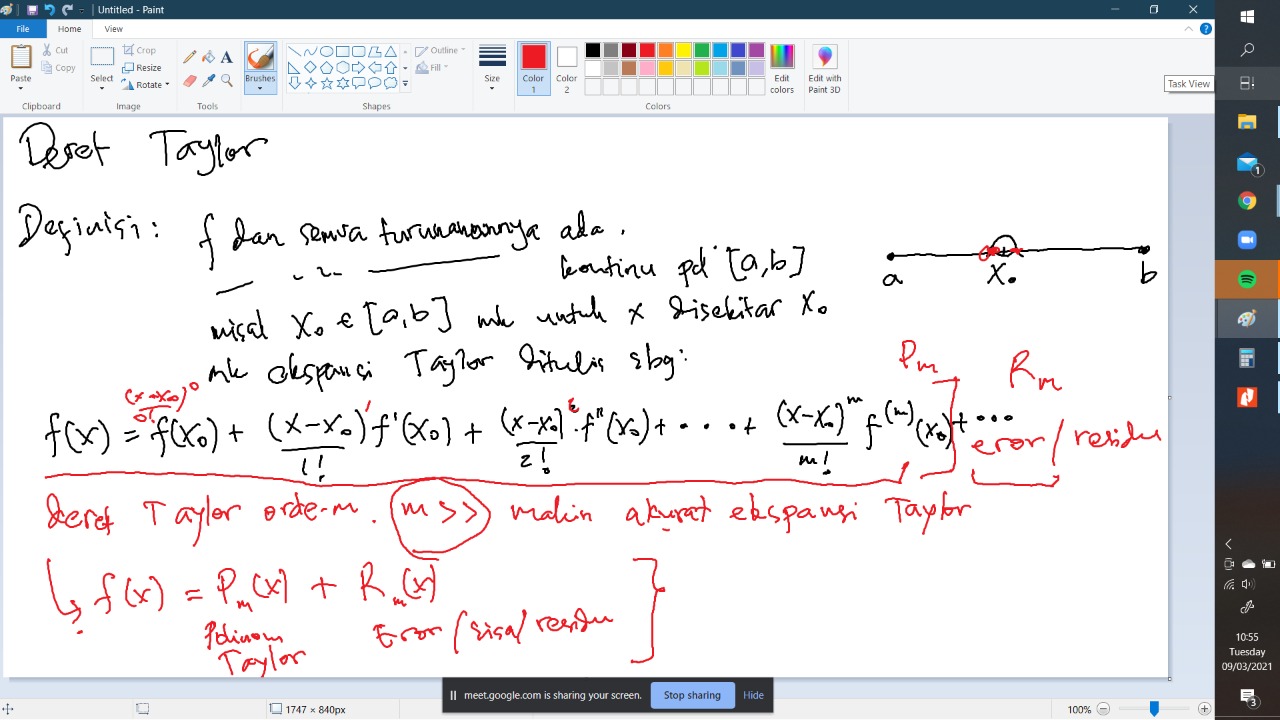 Untitled - Paint
File Home View
Paste Cut Copy Clipboard
Select Crop Resize Rotate Image
Tools
Brushes
Shapes Outline Fill
Size
Color 1 Color 2 Edit colors Colors
Edit with Paint 3D
Task View
Deret Taylor
Definisi: f dan semua turunannya ada,
kontinu pd [a,b]
a x₀ b
misal x₀ ∈ [a,b] mk untuk x disekitar x₀
mk ekspansi Taylor ditulis sbg:
Pm Rm
(x-x₀)⁰/0!
f(x) = f(x₀) + (x-x₀)¹/1! f'(x₀) + (x-x₀)²/2! · f''(x₀) + ··· + (x-x₀)^m/m! f^(m)(x₀) + ···
error/residu
deret Taylor orde-m. m >> makin akurat ekspansi Taylor
↳ f(x) = Pm(x) + Rm(x)
Polinom Taylor
Error/sisa/residu
meet.google.com is sharing your screen. Stop sharing Hide
1747 × 840px
100%
1
10:55
Tuesday
09/03/2021
3